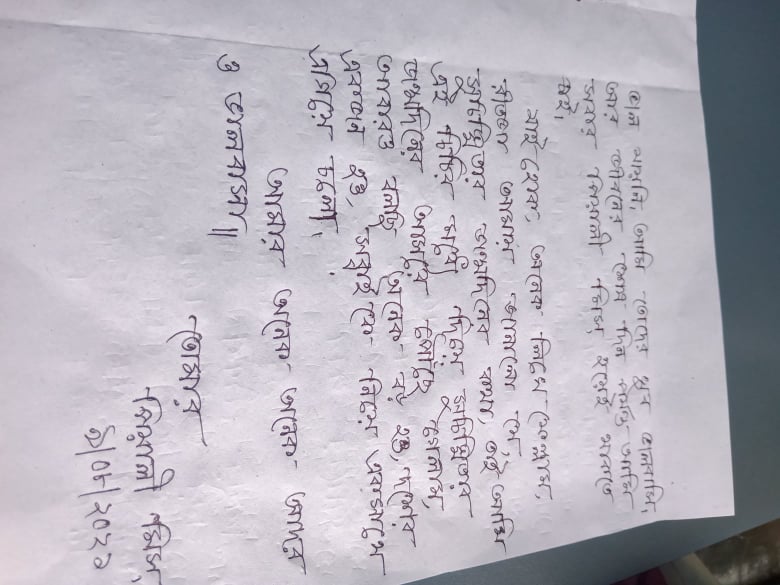 ভাল মানুষনি, আমি তোদের খুব ভালবাসি,
আর জীবনের শেষ দিন পর্যন্ত আমি
সবার পিয়ালী মিস্ হয়েই থাকতে
চাই।
যাই হোক, অনেক লিখে ফেল্লাম,
আমায় জানালো যে,
সুচিস্মিতার জন্মদিনের কথা, তাই আমি
এই চিঠির মধ্যে দিয়ে সুচিস্মিতার
জন্মদিনের আসরে পৌঁছে গেলাম,
আবারও বলছি অনেক বড় হও, দশের
একজন হও, সব্বাই কে নিয়ে একসাথে
এগিয়ে চলো।
আমার অনেক অনেক আদর
ও ভালবাসা॥
তোমার
পিয়ালী মিস্
৯/০৮/২০২১